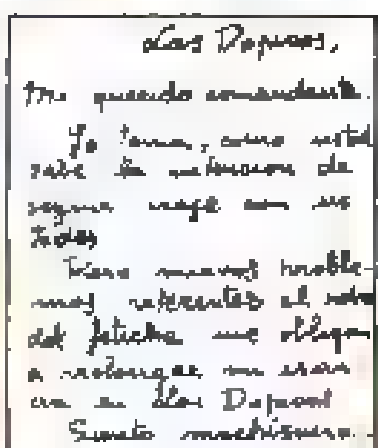 Los Dopicos,
Mi querido comandante.
Yo tenía, como usted
sabe la intencion de
seguir viaje con us
tedes
Pero nuevos proble-
mas referentes al robo
del fetiche me obligan
a prolongar mi estan
cia en Los Dopicos
Siento muchísimo